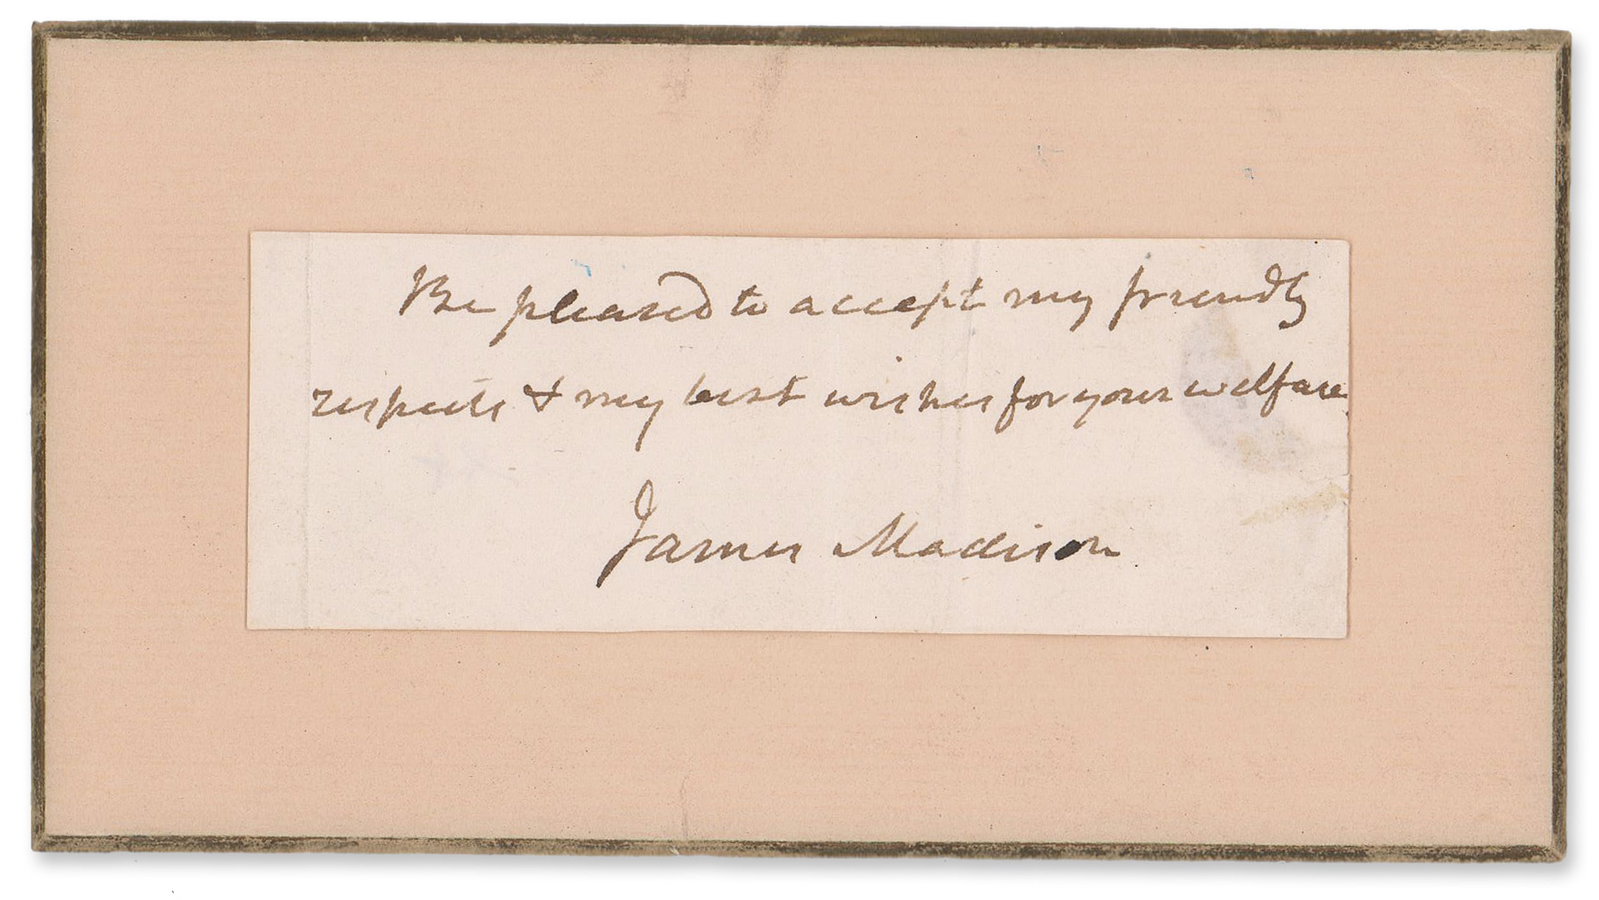 Be pleased to accept my friendly
respects & my best wishes for your welfare.
James Madison